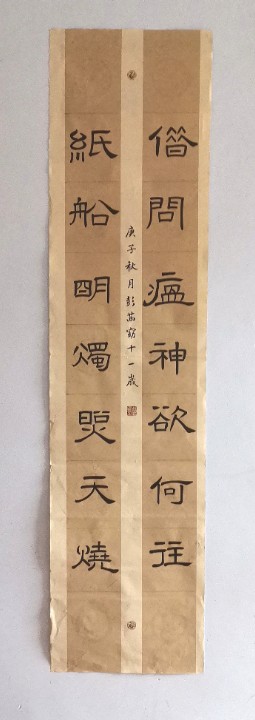 借問瘟神欲何往
紙船明燭照天燒
庚子秋月彭茁窈十一歲